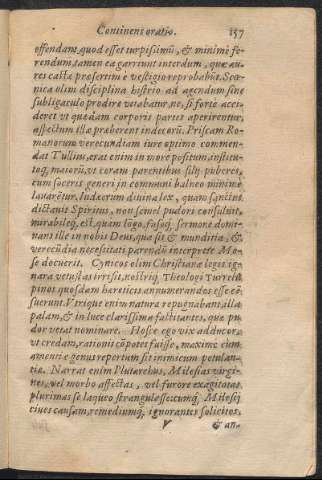 Continens oratio. 157
offendam, quod esset turpissimũ, & minimè fe-
rendum, tamen ea garriunt interdum, quæ au-
res castæ præsertim è vestigio reprobabũt. Sce-
nica olim disciplina histrio ad agendum sine
subligaculo prodire vetabatur, ne, si fortè acci-
deret vt quædam corporis partes aperirentur,
aspectum illæ præberent indecorũ. Priscam Ro-
manorum verecundiam iure optimo commen-
dat Tullius, erat enim in more positum, institu-
toq; maiorũ, vt coram parentibus filij puberes,
cum soceris generi in communi balneo minimè
lauarẽtur. Iudæorum diuina lex, quam sanctus
dictauit Spiritus, non semel pudori consuluit,
mirabileq; est, quam lõgo, fusoq; sermone domi-
nani ille in nobis Deus, quæ sit & munditia, &
verecũdia necessitati parendũ interprete Mo-
se docuerit. Cynicos olim Christianæ legis igna-
ra vetustas irrisit, nostriq; Theologi Turrelu
pinos quosdam hæreticis annumerandos esse cẽ-
suerunt. Vtrique enim natura repugnabant, illa
palam, & in luce clarissima factitantes, quæ pu-
dor vetat nominare. Hosce ego vix adducor,
vt credam, rationis cõpotes fuisse, maximè cùm
amenti &ègenus repertum sit inimicum petulan-
tiæ. Narrat enim Plutarchus, Milesias virgi-
nes, vel morbo affectas, vel furore exagitatas
plurimas se laqueo strangulasse, cumq; Milesij
ciues causam, remediumq; ignorantes solicitos,
V & an-